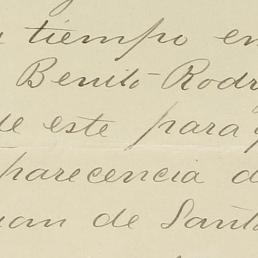 tiempo en
Benito Rodr
de este para q
parecencia d
uan de Santa